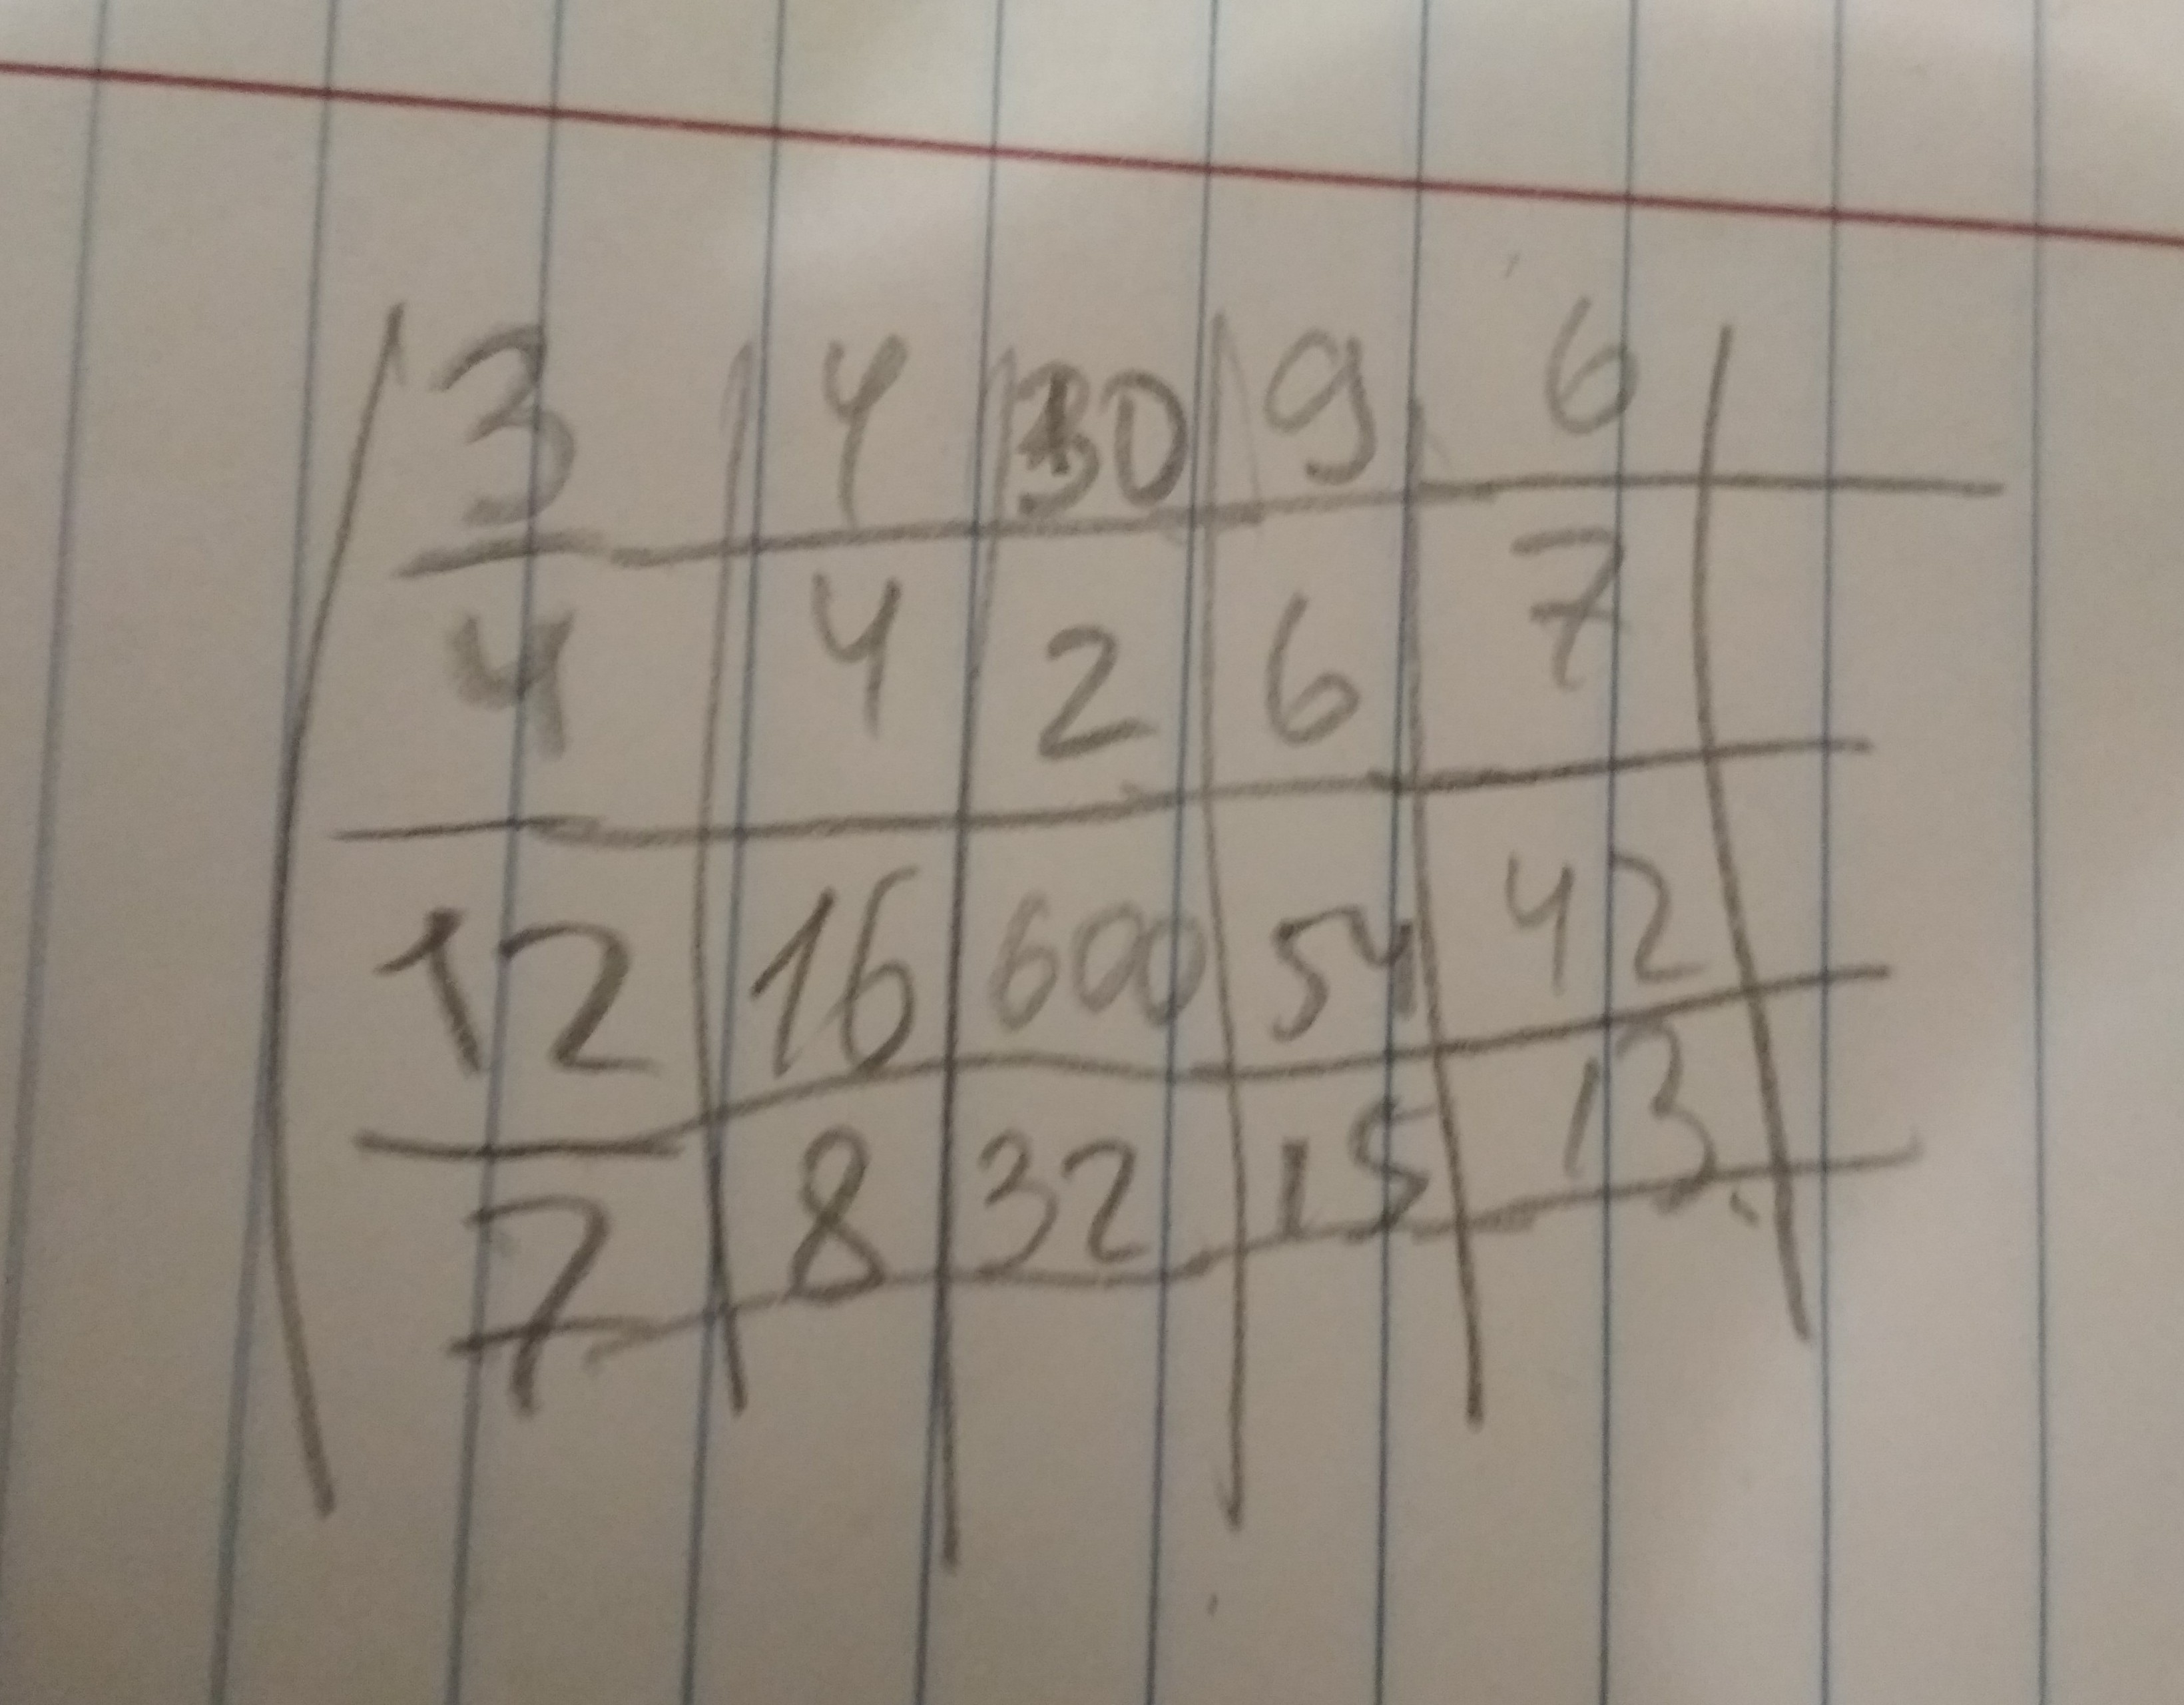 3 4 30 9 6
4 4 2 6 7
12 16 600 54 42
7 8 32 15 13